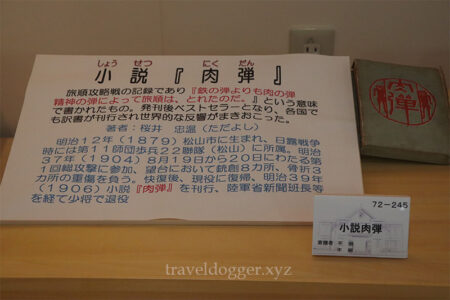 しょう せつ にく だん
小説『肉弾』
旅順攻略戦の記録であり『鉄の弾よりも肉の弾
精神の弾によって旅順は、とれたのだ。』という意味
で書かれたもの。発刊後ベストセラーとなり、各国で
も訳書が刊行され世界的な反響がまきおこった。
著者：桜井 忠温（ただよし）
明治12年（1879）松山市に生まれ、日露戦争
時には第11師団歩兵22聯隊（松山）に出征。明治
37年（1904）8月19日から20日にわたる第
1回総攻撃に参加、望台において銃創8カ所、骨折3
カ所の重傷を負う。快復後、現役に復帰、明治39年
（1906）小説『肉弾』を刊行、陸軍省新聞班長等
を経て少将で退役
肉弾
72-245
小説肉弾
寄贈者
traveldogger.xyz